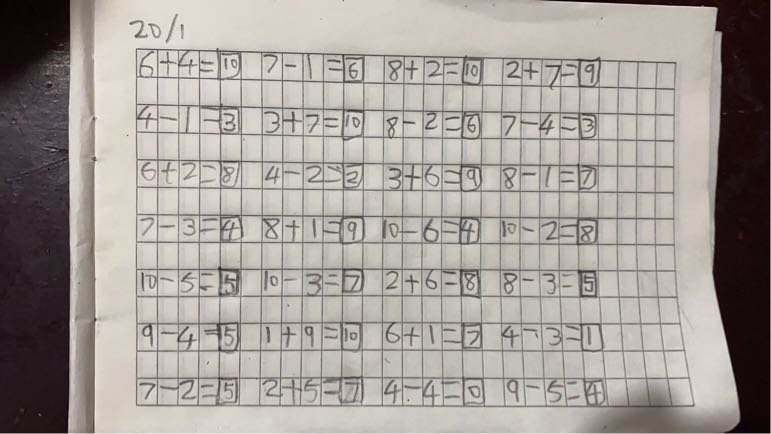 20/1
6+4=10 7-1=6 8+2=10 2+7=9
4-1=3 3+7=10 8-2=6 7-4=3
6+2=8 4-2=2 3+6=9 8-1=7
7-3=4 8+1=9 10-6=4 10-2=8
10-5=5 10-3=7 2+6=8 8-3=5
9-4=5 1+9=10 6+1=7 4-3=1
7-2=5 2+5=7 4-4=0 9-5=4